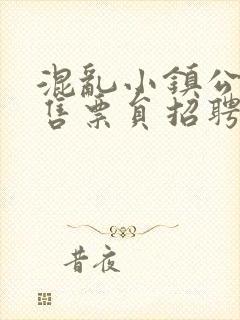 混亂小鎮公
售票員招聘
昔夜